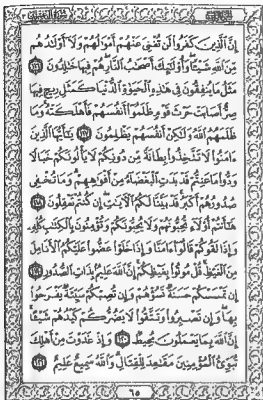 إِنَّ الَّذِينَ كَفَرُوا لَن تُغْنِيَ عَنْهُمْ أَمْوَالُهُمْ وَلَا أَوْلَادُهُم
مِّنَ اللَّهِ شَيْئًا وَأُولَٰئِكَ أَصْحَابُ النَّارِ هُمْ فِيهَا خَالِدُونَ ١١٦
مَثَلُ مَا يُنفِقُونَ فِي هَٰذِهِ الْحَيَاةِ الدُّنْيَا كَمَثَلِ رِيحٍ فِيهَا
صِرٌّ أَصَابَتْ حَرْثَ قَوْمٍ ظَلَمُوا أَنفُسَهُمْ فَأَهْلَكَتْهُ وَمَا
ظَلَمَهُمُ اللَّهُ وَلَٰكِنْ أَنفُسَهُمْ يَظْلِمُونَ ١١٧ يَا أَيُّهَا الَّذِينَ
آمَنُوا لَا تَتَّخِذُوا بِطَانَةً مِّن دُونِكُمْ لَا يَأْلُونَكُمْ خَبَالًا
وَدُّوا مَا عَنِتُّمْ قَدْ بَدَتِ الْبَغْضَاءُ مِنْ أَفْوَاهِهِمْ وَمَا تُخْفِي
صُدُورُهُمْ أَكْبَرُ قَدْ بَيَّنَّا لَكُمُ الْآيَاتِ إِن كُنتُمْ تَعْقِلُونَ ١١٨
هَا أَنتُمْ أُولَاءِ تُحِبُّونَهُمْ وَلَا يُحِبُّونَكُمْ وَتُؤْمِنُونَ بِالْكِتَابِ كُلِّهِ
وَإِذَا لَقُوكُمْ قَالُوا آمَنَّا وَإِذَا خَلَوْا عَضُّوا عَلَيْكُمُ الْأَنَامِلَ
مِنَ الْغَيْظِ قُلْ مُوتُوا بِغَيْظِكُمْ إِنَّ اللَّهَ عَلِيمٌ بِذَاتِ الصُّدُورِ ١١٩
إِن تَمْسَسْكُمْ حَسَنَةٌ تَسُؤْهُمْ وَإِن تُصِبْكُمْ سَيِّئَةٌ يَفْرَحُوا
بِهَا وَإِن تَصْبِرُوا وَتَتَّقُوا لَا يَضُرُّكُمْ كَيْدُهُمْ شَيْئًا
إِنَّ اللَّهَ بِمَا يَعْمَلُونَ مُحِيطٌ ١٢٠ وَإِذْ غَدَوْتَ مِنْ أَهْلِكَ
تُبَوِّئُ الْمُؤْمِنِينَ مَقَاعِدَ لِلْقِتَالِ وَاللَّهُ سَمِيعٌ عَلِيمٌ ١٢١
٦٥